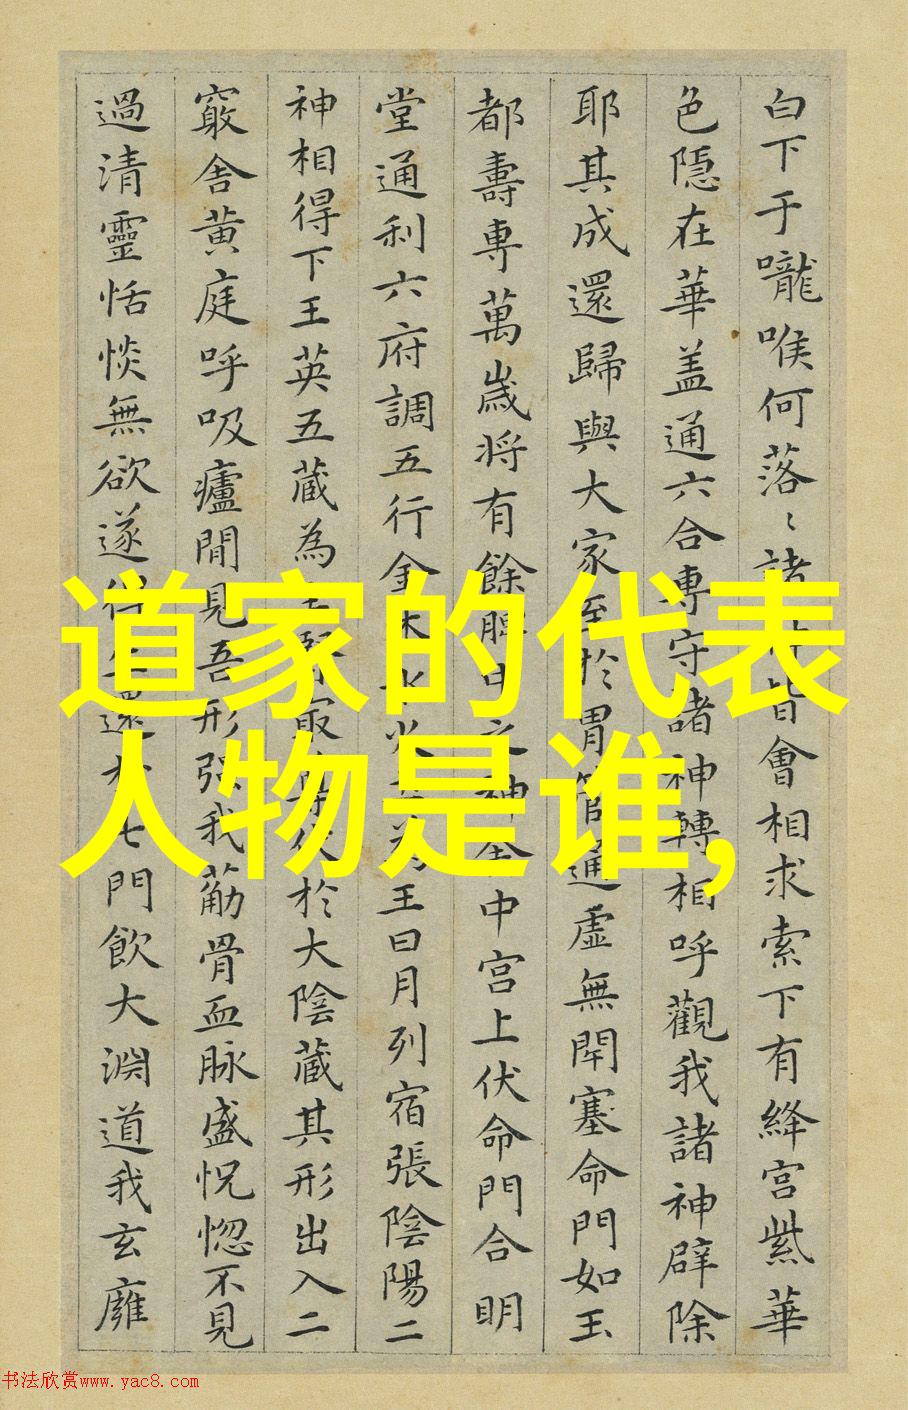 白下于嚨喉何落〻諸神皆會相求索下有絳宮紫華
色隱在華盖通六合專守諸神轉相呼觀我諸神辟除
耶其成還歸與大家至於胃管通虛無閇塞命門如玉
都壽專萬歲将有餘脾中之神舍中宮上伏命門合明
堂通利六府調五行金木水火土為王日月列宿張陰陽二
神相得下王英五藏為主腎冣尊伏於大陰藏其形出入二
竅舍黄庭呼吸廬閒見吾形强我筋骨血脉盛怳惚不見
過清靈恬惔無欲遂得生還於七門飲大淵道我玄廱
道家的代表
人物是谁,
书法欣赏www.yac8.com